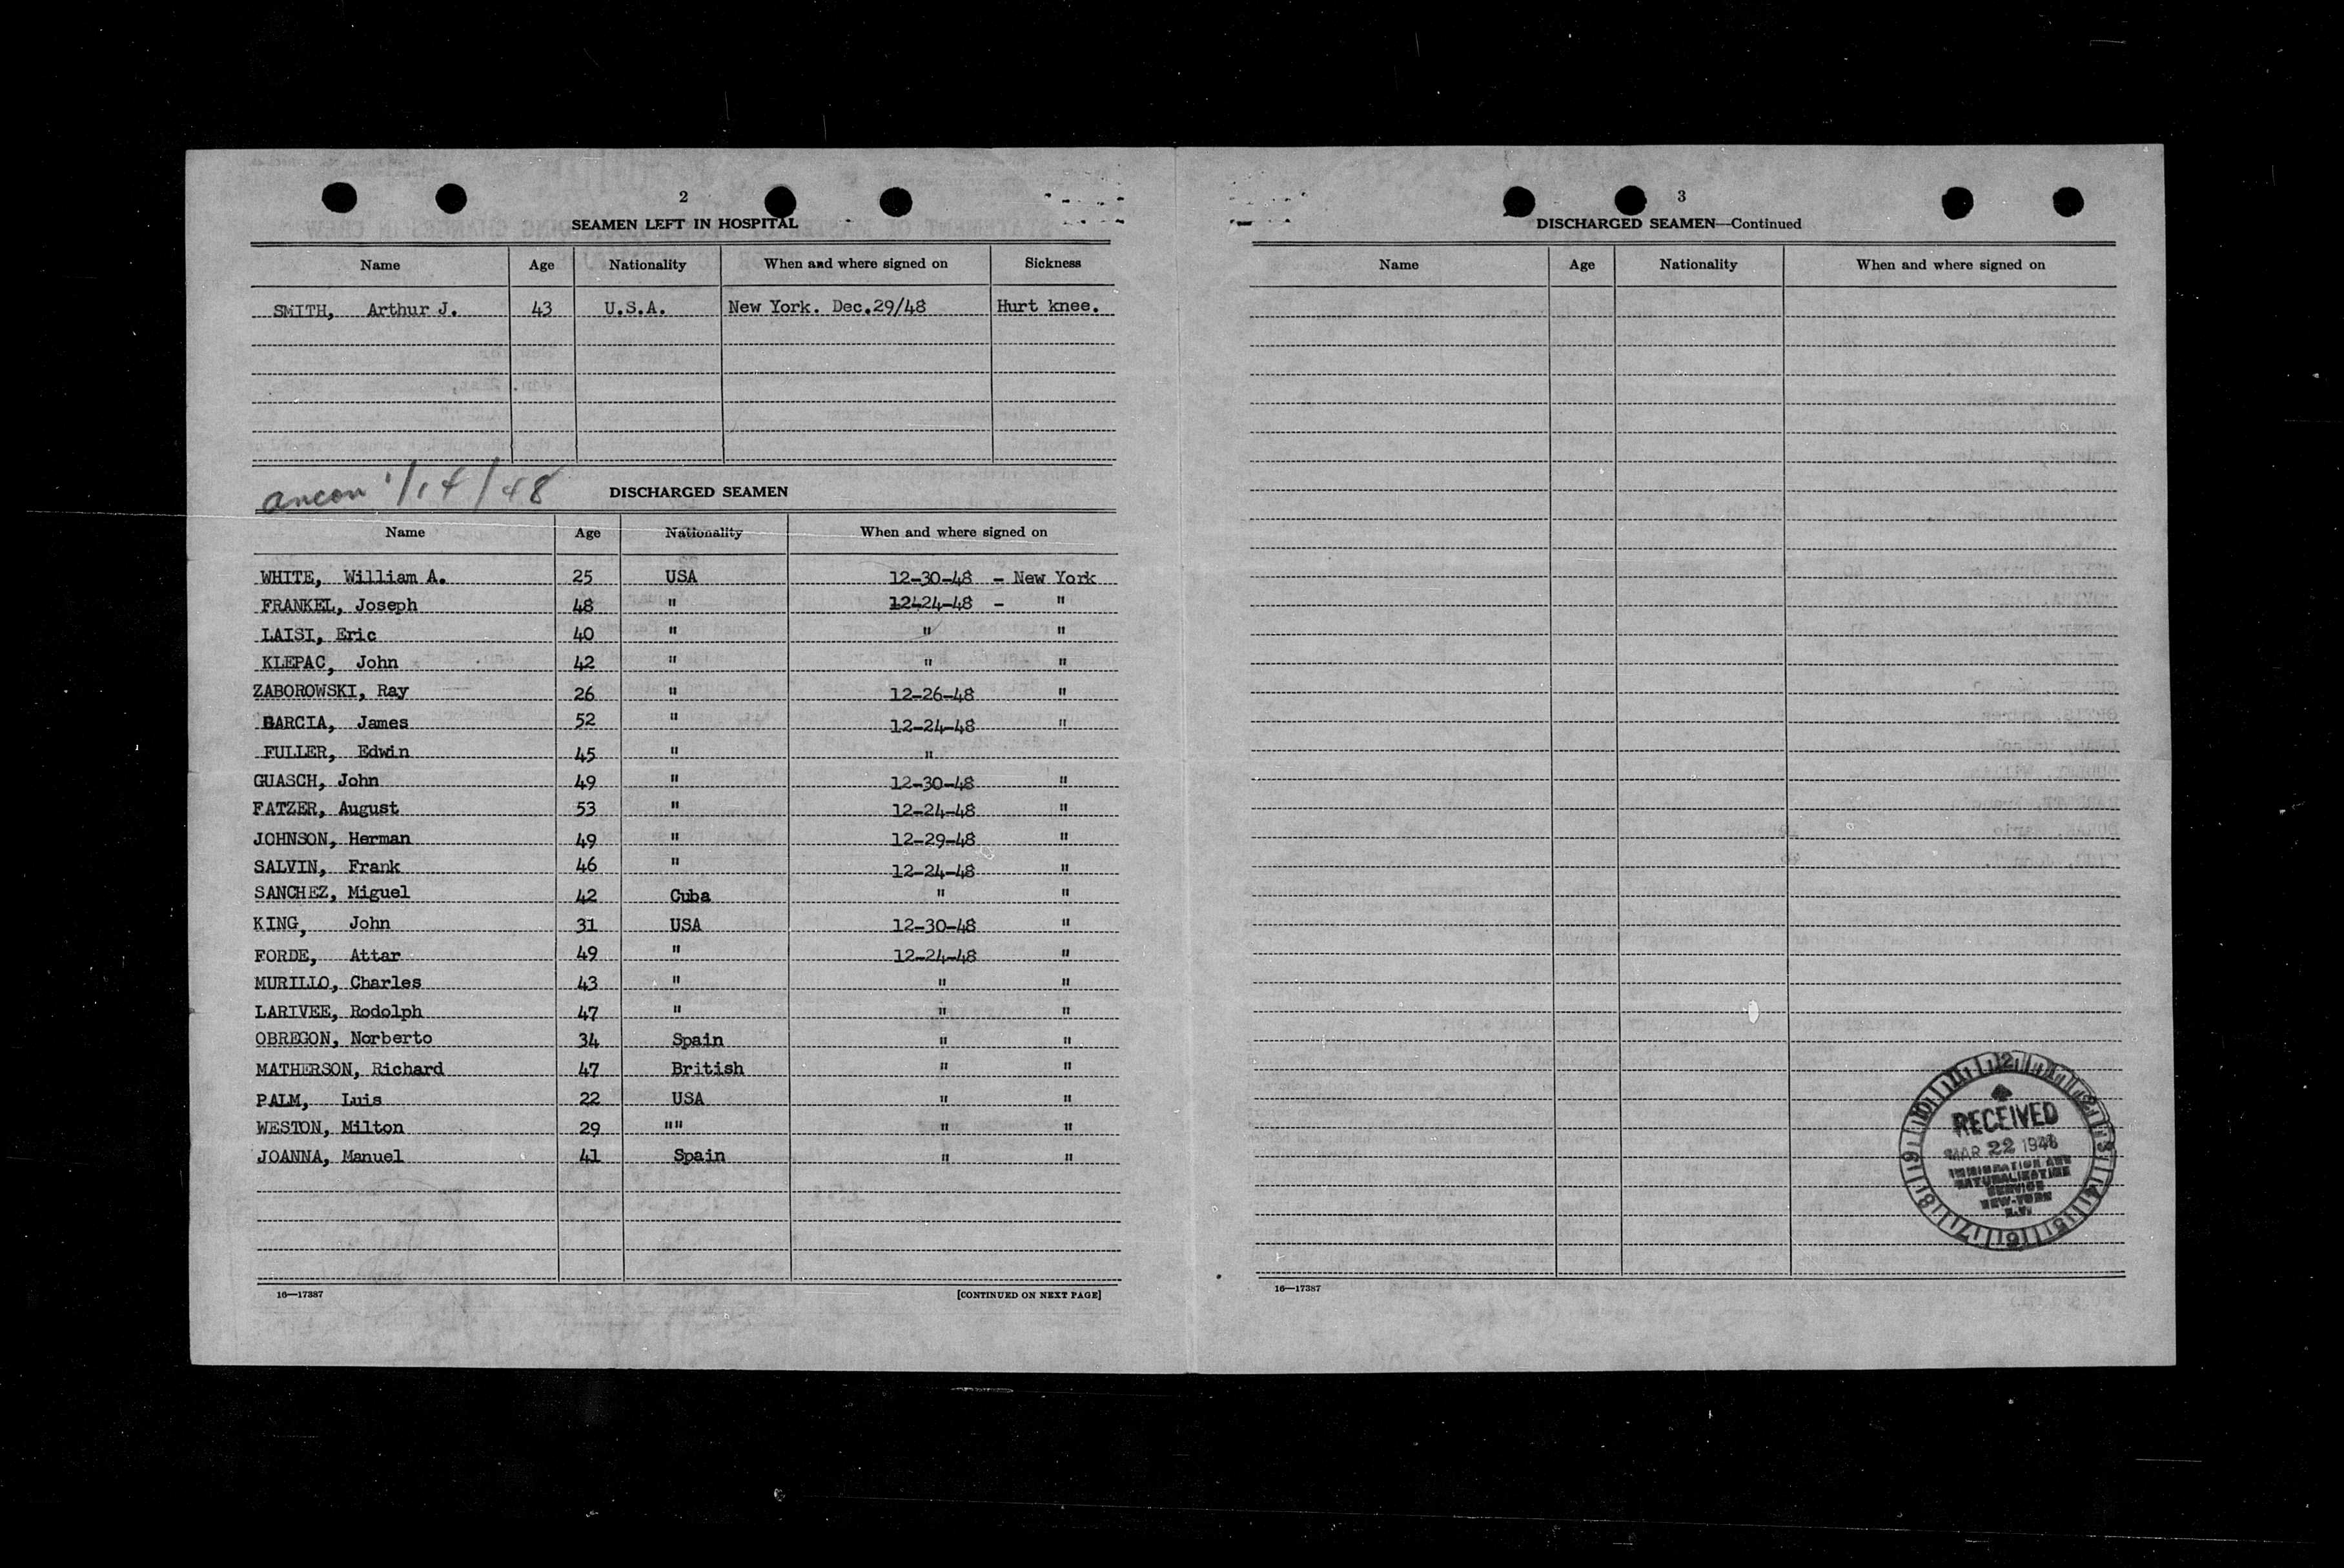 2
SEAMEN LEFT IN HOSPITAL
Name Age Nationality When and where signed on Sickness
SMITH, Arthur J. 43 U.S.A. New York. Dec.29/48 Hurt knee.
ancon 1/14/48
DISCHARGED SEAMEN
Name Age Nationality When and where signed on
WHITE, William A. 25 USA 12-30-48 - New York
FRANKEL, Joseph 48 " 12-24-48 - "
LAISI, Eric 40 " " "
KLEPAC, John 42 " " "
ZABOROWSKI, Ray 26 " 12-26-48 "
BARCIA, James 52 " 12-24-48 "
FULLER, Edwin 45 " "
GUASCH, John 49 " 12-30-48 "
FATZER, August 53 " 12-24-48 "
JOHNSON, Herman 49 " 12-29-48 "
SALVIN, Frank 46 " 12-24-48 "
SANCHEZ, Miguel 42 Cuba " "
KING, John 31 USA 12-30-48 "
FORDE, Attar 49 " 12-24-48 "
MURILLO, Charles 43 " " "
LARIVEE, Rodolph 47 " " "
OBREGON, Norberto 34 Spain " "
MATHERSON, Richard 47 British " "
PALM, Luis 22 USA " "
WESTON, Milton 29 "" " "
JOANNA, Manuel 41 Spain " "
16—17387
[CONTINUED ON NEXT PAGE]
3
DISCHARGED SEAMEN—Continued
Name Age Nationality When and where signed on
12 1 2 3 4 5 6 7 8 9 10 11
RECEIVED
MAR 22 1948
IMMIGRATION AND
NATURALIZATION
SERVICE
NEW-YORK
N.Y.
16—17387